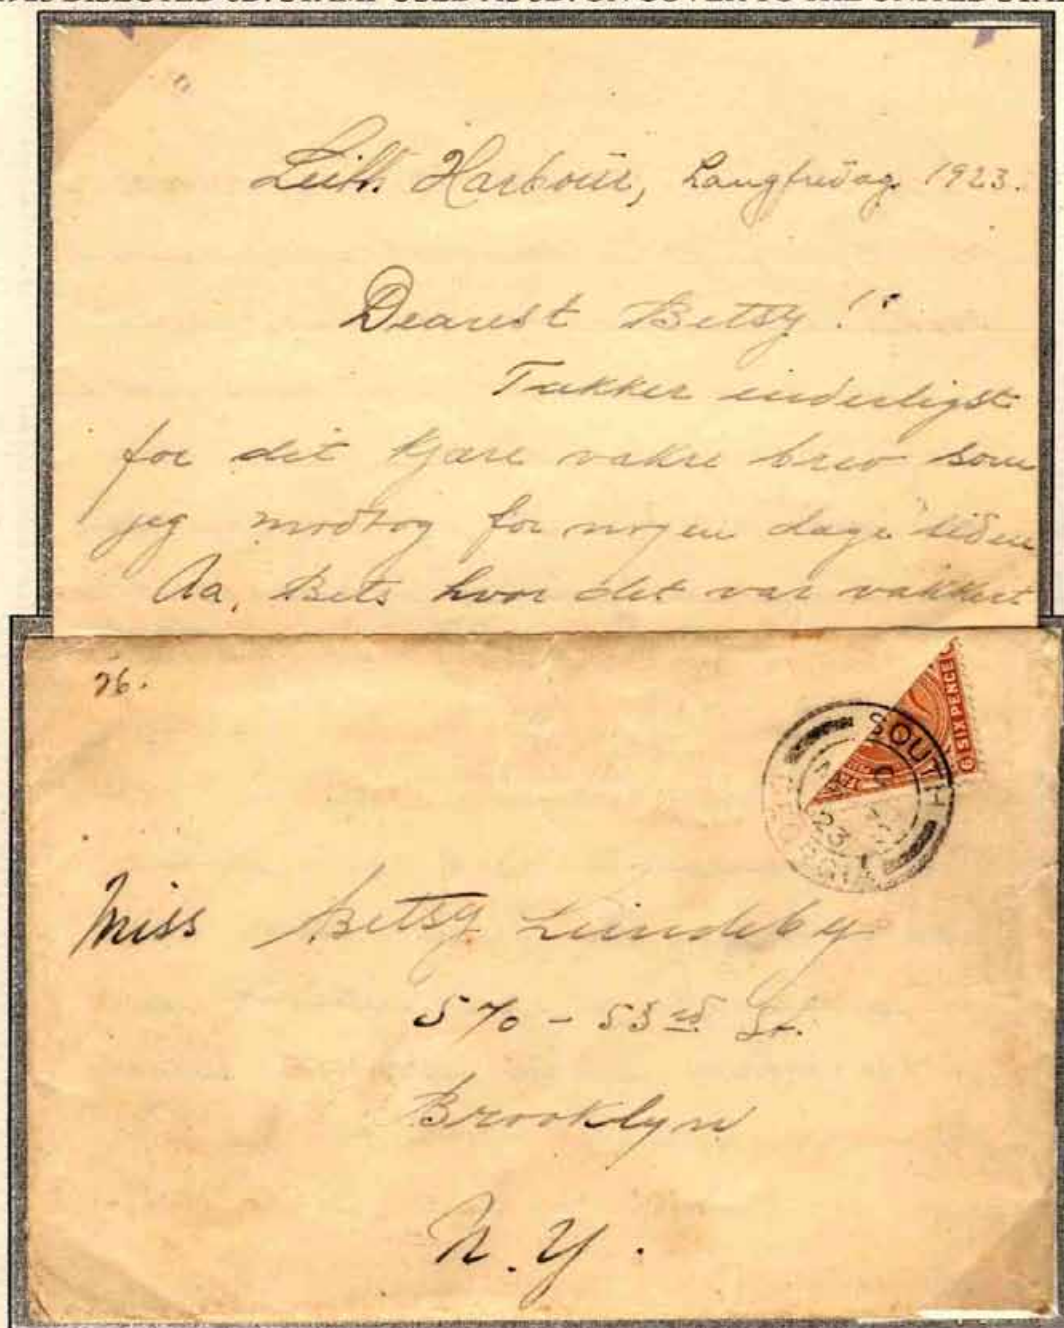 Leith Harbour, Langfredag 1923.
Dearest Betsy!
Takker inderligst
for dit kjære vakre brev som
jeg modtog for nogen dage siden
Aa, Bets hvor det var vakkert
26.
SIX PENCE
SOUTH
GEORGIA
23
Miss Betsy Lundeby
570 - 53rd St.
Brooklyn
N.Y.